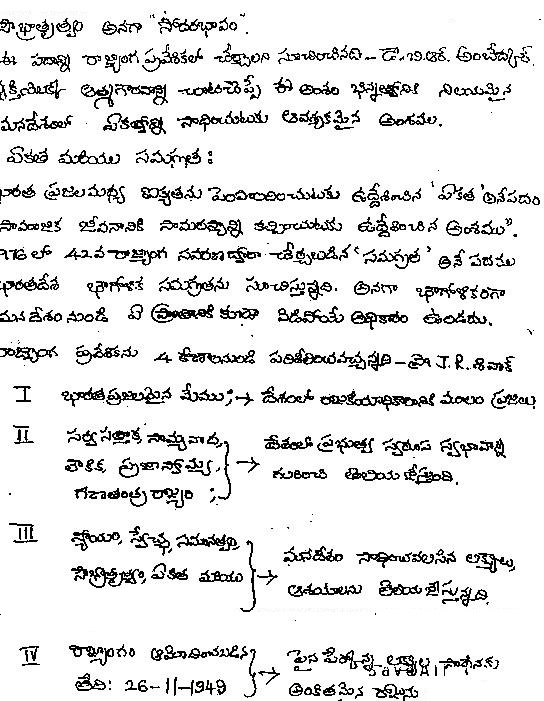 సౌభ్రాతృత్వం అనగా "సోదరభావం".
ఈ పదాన్ని రాజ్యాంగ ప్రవేశికలో చేర్చాలని సూచించినది - డా. బి.ఆర్. అంబేద్కర్.
వ్యక్తియొక్క ఆత్మగౌరవాన్ని చాటిచెప్పే ఈ అంశం భిన్నత్వానికి నిలయమైన
మనదేశంలో ఏకత్వాన్ని సాధించుటకు ఆవశ్యకమైన అంశము.
ఏకత మరియు సమగ్రత :
భారత ప్రజలమధ్య ఐక్యతను పెంపొందించుటకు ఉద్దేశించిన 'ఏకత' అనేపదం
సామాజిక జీవనానికి సామరస్యాన్ని కల్పించుటకు ఉద్దేశించిన అంశము".
976 లో 42వ రాజ్యాంగ సవరణ ద్వారా చేర్చబడిన 'సమగ్రత' అనే పదము
భారతదేశ భౌగోళిక సమగ్రతను సూచిస్తున్నది. అనగా భౌగోళికంగా
మనదేశం నుండి ఏ ప్రాంతానికి కూడా విడిపోయే అధికారం ఉండదు.
రాజ్యాంగ ప్రవేశికను 4 కోణాలనుండి పరిశీలించవచ్చన్నది - ప్రొ J.R. శివాక్
I భారత ప్రజలమైన మేము ; → దేశంలో రాజకీయాధికారానికి మూలం ప్రజలు
II సర్వసత్తాక సామ్యవాద, లౌకిక ప్రజాస్వామ్య, గణతంత్ర రాజ్యం ; → దేశంలో ప్రభుత్వ స్వరూప స్వభావాన్ని గురించి తెలియజేస్తుంది.
III న్యాయం, స్వేచ్ఛ, సమానత్వం, సౌభ్రాతృత్వం, ఏకత మరియు → మనదేశం సాధించవలసిన లక్ష్యాలు, ఆశయాలను తెలియజేస్తున్నది.
IV రాజ్యాంగం ఆమోదించబడిన తేది: 26-11-1949 → పైన పేర్కొన్న లక్ష్యాల సాధనకు అంకితమైన